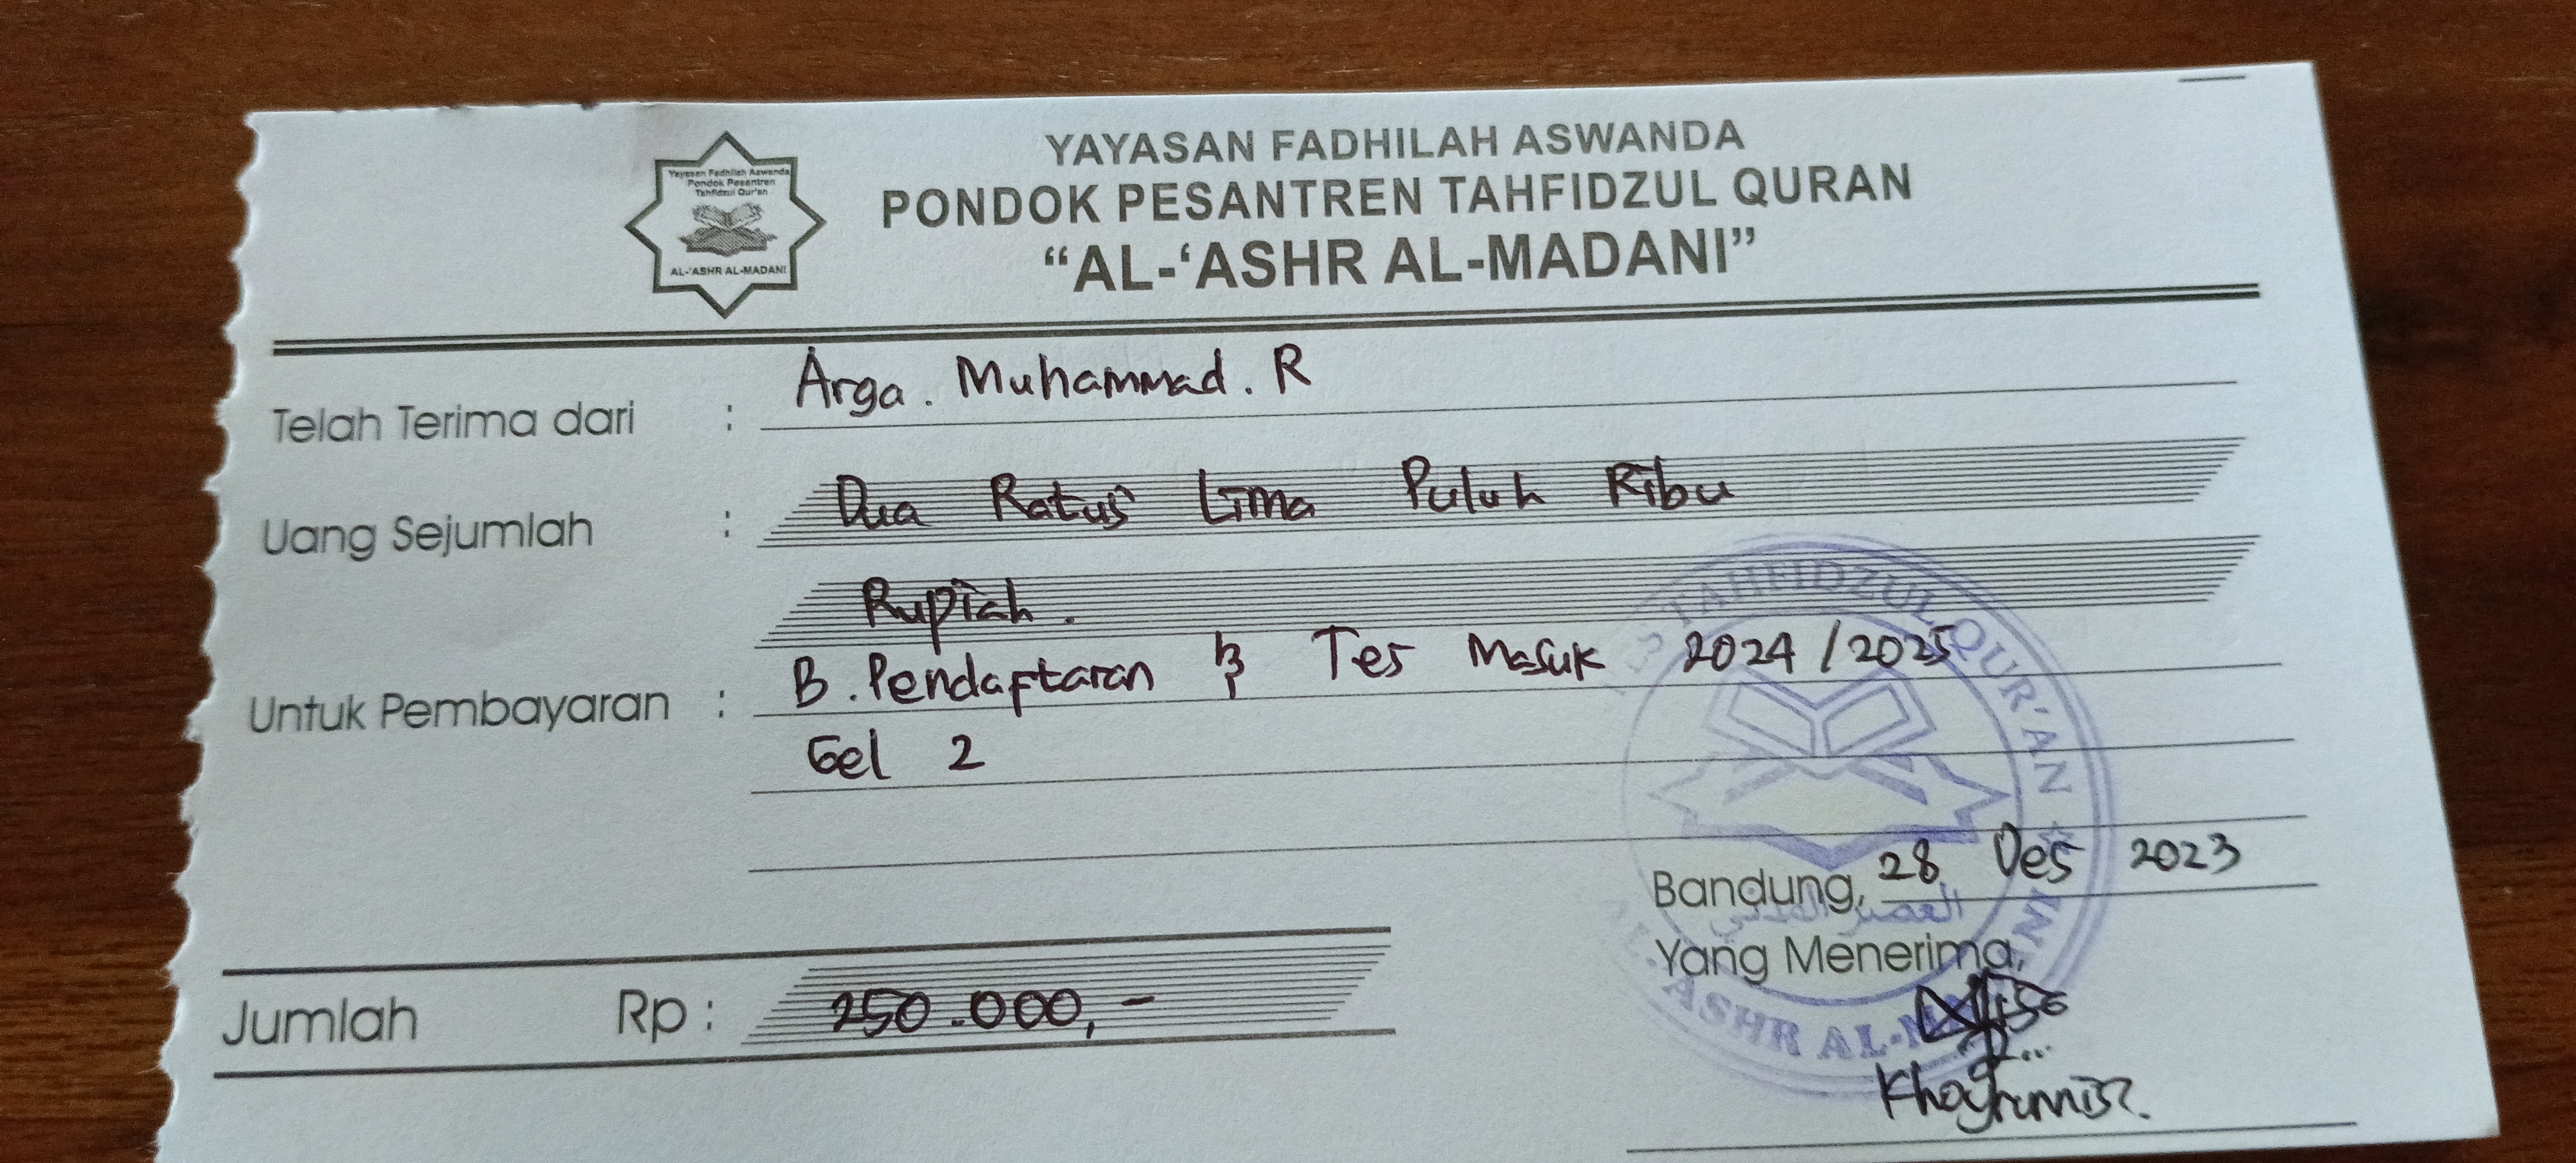 Yayasan Fadhilah Aswanda
Pondok Pesantren
Tahfidzul Qur'an
AL-'ASHR AL-MADANI
YAYASAN FADHILAH ASWANDA
PONDOK PESANTREN TAHFIDZUL QURAN
“AL-‘ASHR AL-MADANI”
Telah Terima dari : Arga. Muhammad. R
Uang Sejumlah : Dua Ratus Lima Puluh Ribu
Rupiah.
Untuk Pembayaran : B. Pendaftaran & Tes Masuk 2024/2025
Gel 2
TAHFIDZUL QUR'AN
Bandung, 28 Des 2023
Yang Menerima,
Jumlah Rp : 250.000,-